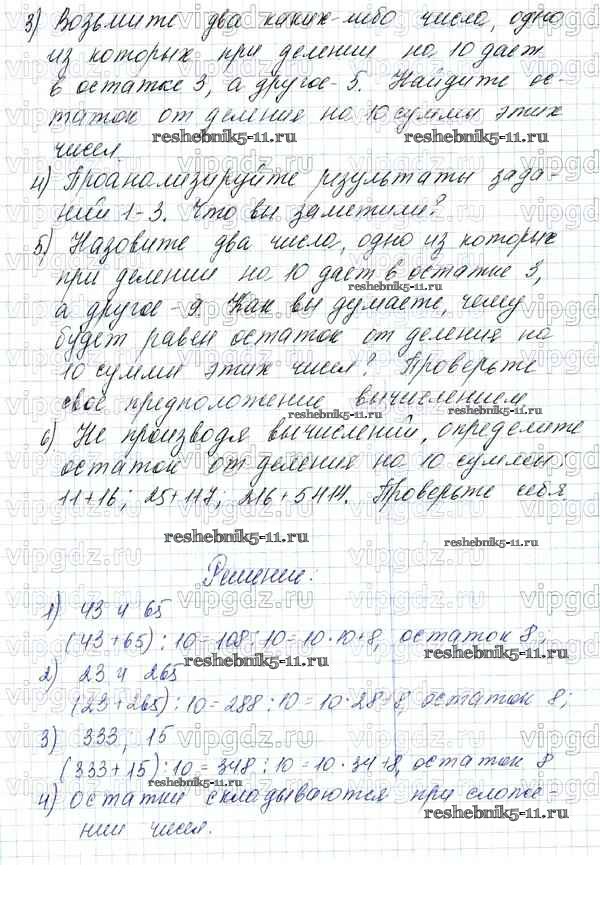 3) Возьмите два каких-либо числа, одно
из которых при делении на 10 дает
в остатке 3, а другое - 5. Найдите ос-
таток от деления на 10 суммы этих
чисел.
reshebnik5-11.ru
4) Проанализируйте результаты зада-
ний 1-3. Что вы заметили?
5) Назовите два числа, одно из которых
при делении на 10 дает в остатке 3,
reshebnik5-11.ru
а другое - 9. Как вы думаете, чему
будет равен остаток от деления на
10 суммы этих чисел? Проверьте
свое предположение вычислением.
reshebnik5-11.ru
reshebnik5-11.ru
6) Не производя вычислений, определите
остаток от деления на 10 суммы:
11+16; 25+117; 216+5414. Проверьте себя.
reshebnik5-11.ru
reshebnik5-11.ru
Решение:
1) 43 и 65
(43+65):10=108:10=10·10+8, остаток 8;
reshebnik5-11.ru
reshebnik5-11.ru
2) 23 и 265
(23+265):10=288:10=10·28+8, остаток 8;
3) 333; 15
(333+15):10=348:10=10·34+8, остаток 8
reshebnik5-11.ru
4) остатки складываются при сложе-
reshebnik5-11.ru
нии чисел.
vipgdz.ru